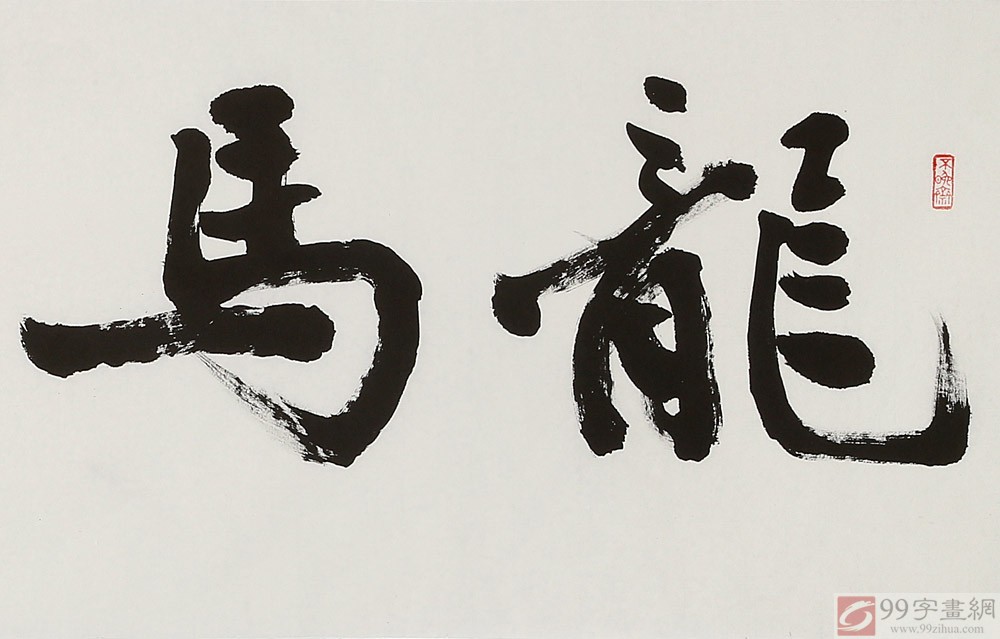 龍馬
99字畫網
www.99zihua.com